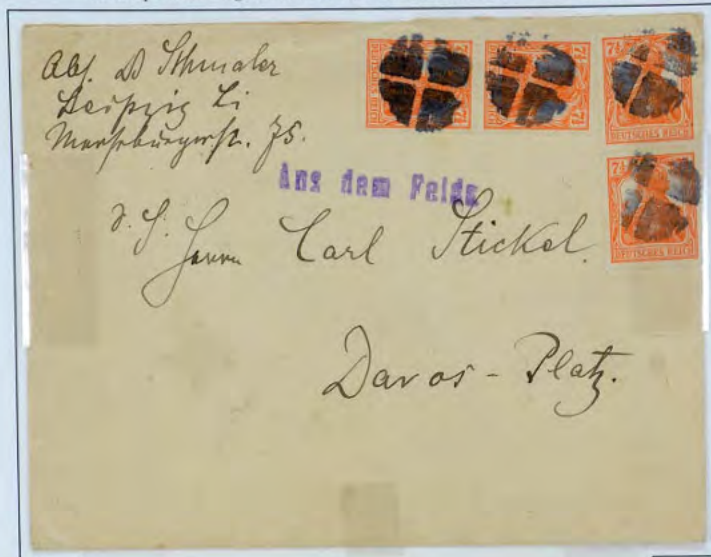 Abs. D Schmaler
Leipzig Li
Merseburgerst. 75.
Aus dem Felde
Herrn Carl Stickel.
Davos - Platz.
7½
DEUTSCHES REICH
7½
DEUTSCHES REICH